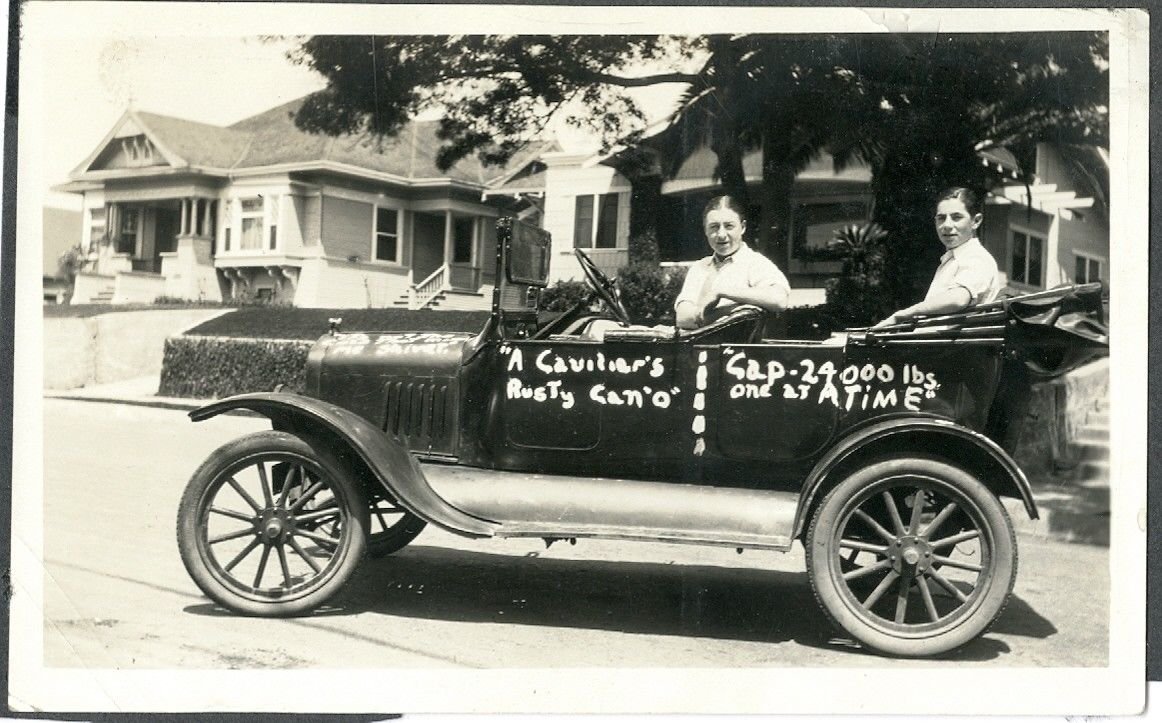 "A Cavilier's
Rusty Can'o"
"Cap-24,000 lbs.
one at A TIME"